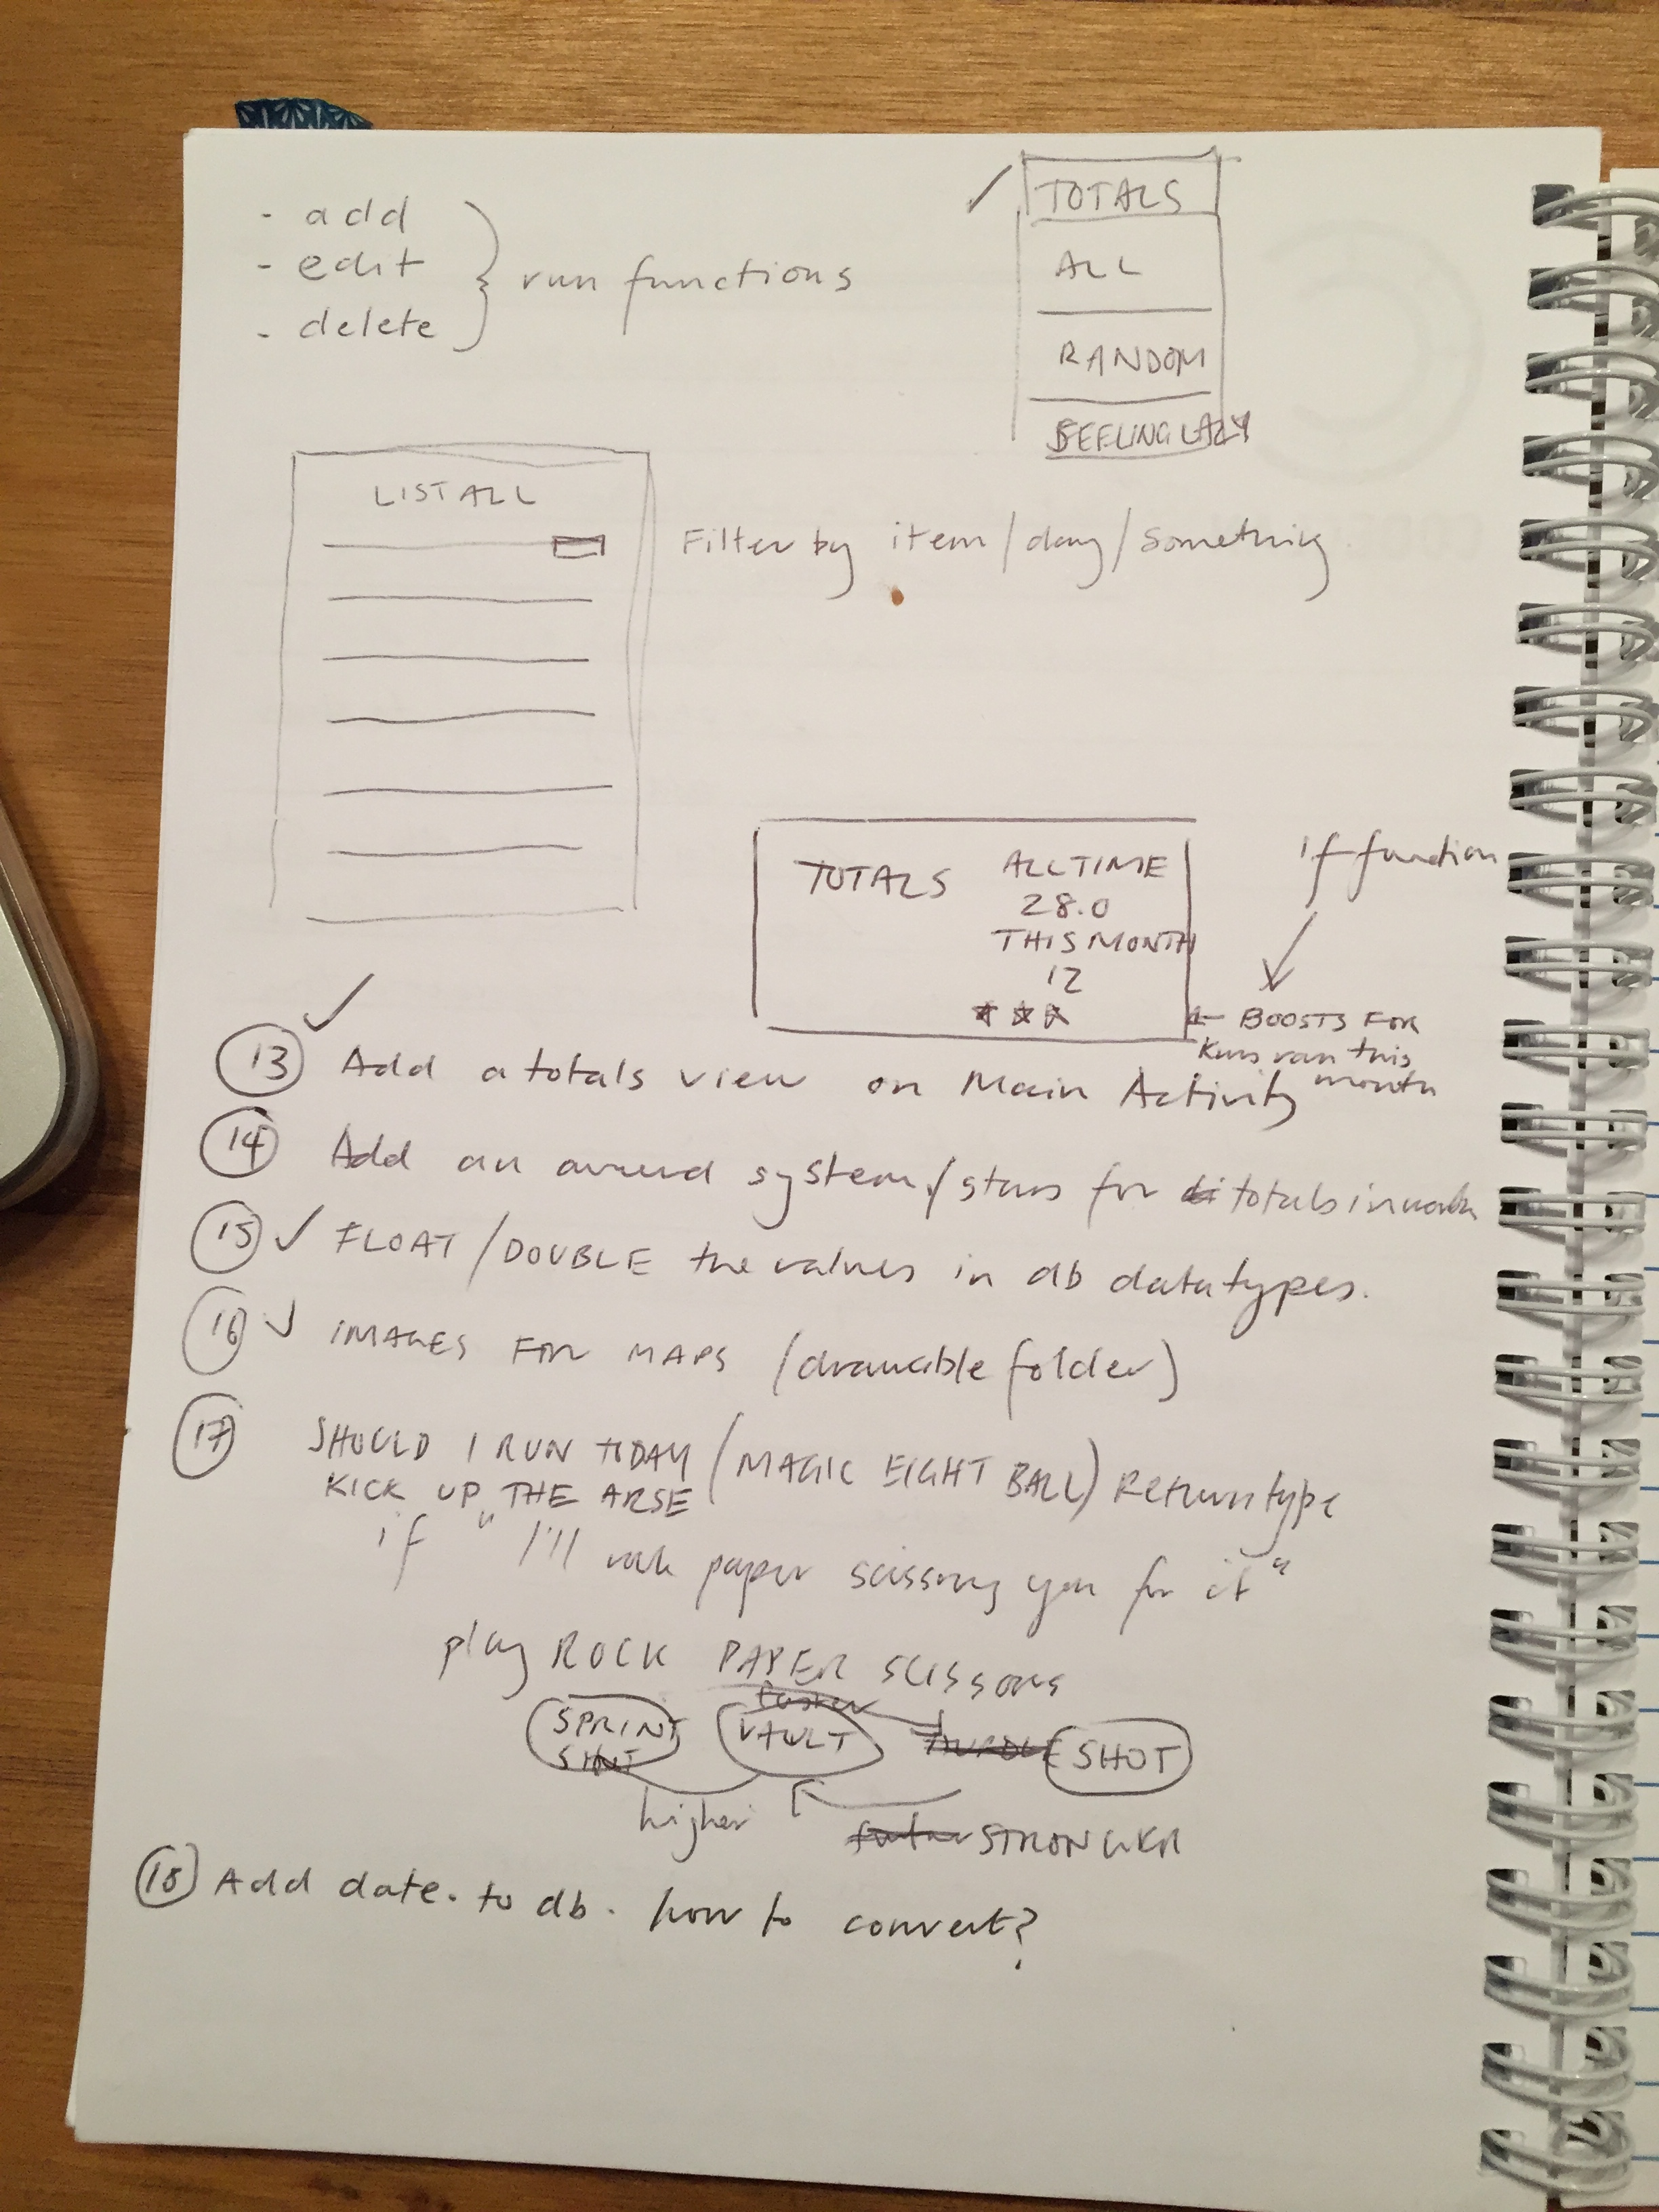 - add
- edit
- delete
run functions
TOTALS
ALL
RANDOM
FEELING LAZY
LIST ALL
Filter by item/day/something
TOTALS
ALL TIME
28.0
THIS MONTH
12
if function
← BOOSTS FOR
Kms ran this
month
13 Add a totals view on Main Activity
14 Add an award system/stars for totals in
15 ✓ FLOAT/DOUBLE the values in db datatypes.
16 ✓ IMAGES FOR MAPS (drawable folder)
17 SHOULD I RUN TODAY (MAGIC EIGHT BALL) Return type
KICK UP THE ARSE
if "I'll rock paper scissors you for it"
play ROCK PAPER SCISSORS
faster
SPRINT VAULT HURDLE SHOT
higher
STRONGER
18 Add date. to db. how to convert?